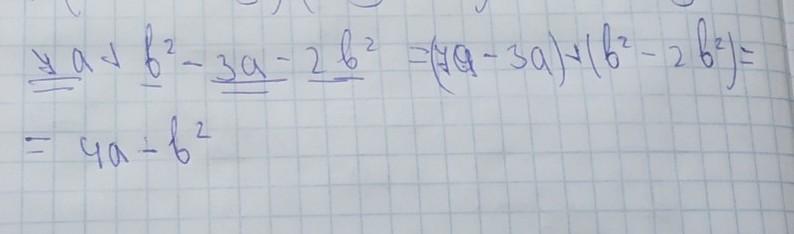 7a + b² - 3a - 2b² = (7a - 3a) + (b² - 2b²) =
= 4a - b²